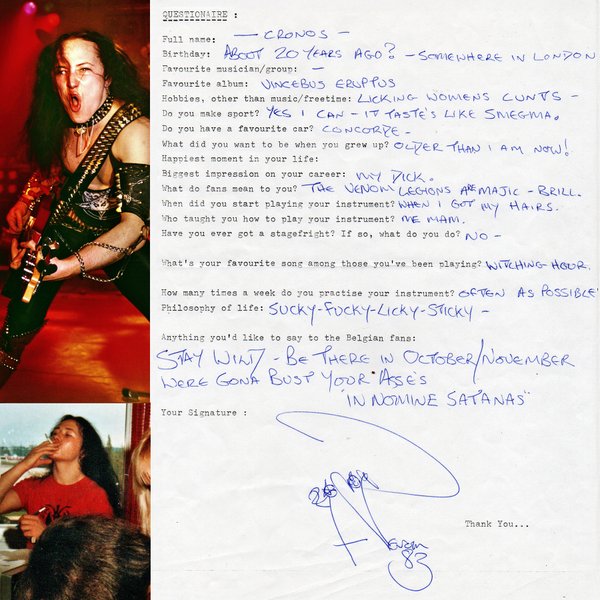 QUESTIONAIRE :
Full name: — CRONOS —
Birthday: ABOUT 20 YEARS AGO? — SOMEWHERE IN LONDON
Favourite musician/group: —
Favourite album: VINCEBUS ERUPTUS
Hobbies, other than music/freetime: LICKING WOMENS CUNTS —
Do you make sport? YES I CAN — IT TASTE'S LIKE SMEGMA.
Do you have a favourite car? CONCORDE —
What did you want to be when you grew up? OLDER THAN I AM NOW!
Happiest moment in your life:
Biggest impression on your career: MY DICK.
What do fans mean to you? THE VENOM LEGIONS ARE MAJIC — BRILL.
When did you start playing your instrument? WHEN I GOT MY HAIRS.
Who taught you how to play your instrument? ME MAM.
Have you ever got a stagefright? If so, what do you do? NO —
What's your favourite song among those you've been playing? WITCHING HOUR.
How many times a week do you practise your instrument? OFTEN AS POSSIBLE
Philosophy of life: SUCKY-FUCKY-LICKY-STICKY —
Anything you'd like to say to the Belgian fans:
STAY — BE THERE IN OCTOBER/NOVEMBER
WERE GONA BUST YOUR ASSE'S
"IN NOMINE SATANAS"
Your Signature :
Thank You...
Venom
83